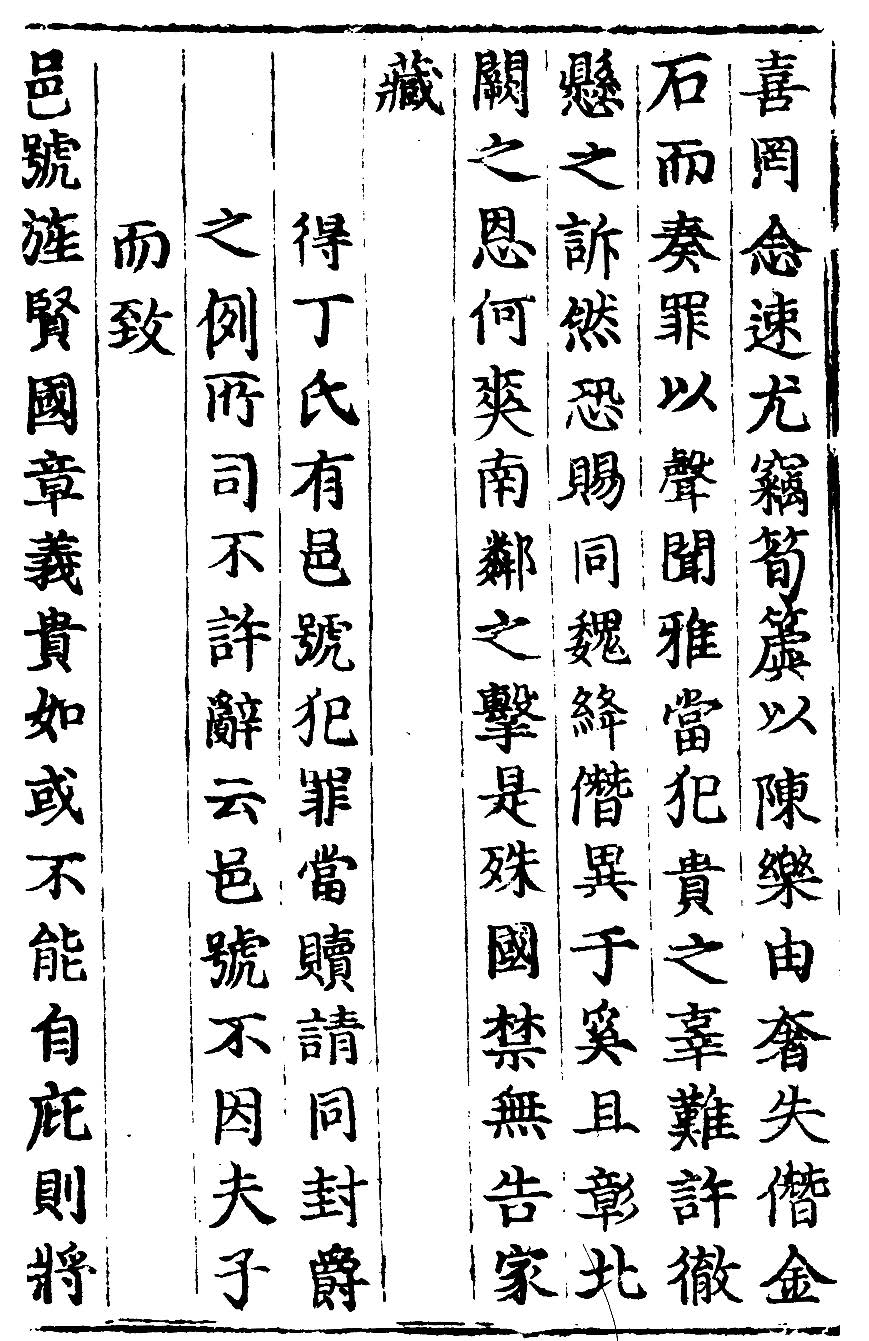 喜罔念速尤竊筍簴以陳樂由奢失僭金
石而奏罪以聲聞雅當犯貴之辜難許徹
懸之訴然恐賜同魏絳僭異于奚且彰北
闕之恩何爽南鄰之擊是殊國禁無告家
藏
得丁氏有邑號犯罪當贖請同封爵
之例所司不許辭云邑號不因夫子
而致
邑號旌賢國章義貴如或不能自庇則將